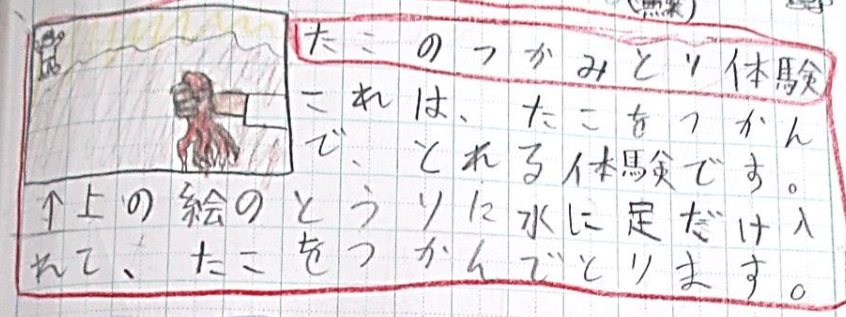 たこのつかみとり体験
これは、たこをつかん
で、とれる体験です。
↑上の絵のとうりに水に足だけ入
れて、たこをつかんでとります。